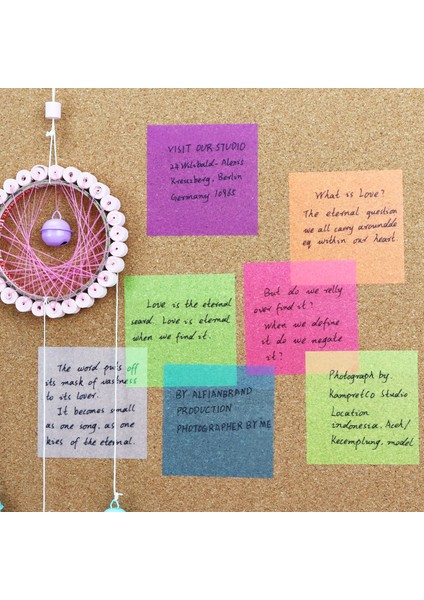 VISIT OUR STUDIO
24 Wilibald-Alexis
Kreuzberg, Berlin
Germany 10965
What is Love?
The eternal question
we all carry arroundde
eq within our heart
Love is the eternal
seard. Love is eternal
when we find it.
But do we relly
over find it?
When we define
it do we negate
it?
The word puts off
its mask of vastness
to its lover.
It becomes small
as one song, as one
kies of the eternal.
BY ALFIANBRAND
PRODUCTION
PHOTOGRAPHER BY ME
Photograph by.
KampretCo Studio
Location
indonessia. Aceh/
Kecemplung. model